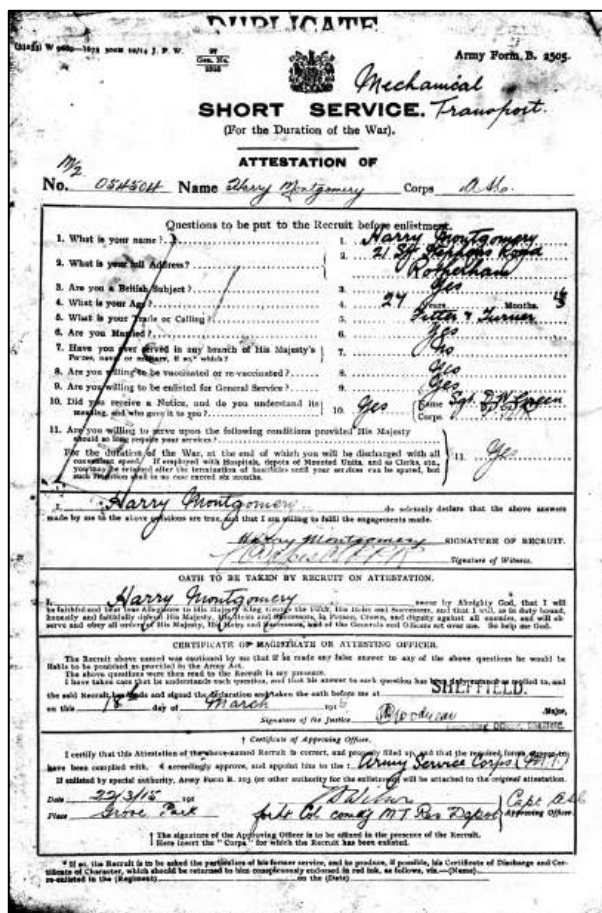 DUPLICATE
Army Form B. 2505.
Mechanical
SHORT SERVICE. Transport.
(For the Duration of the War).
ATTESTATION OF
M/2
No. 054504 Name Harry Montgomery Corps A.S.C.
Questions to be put to the Recruit before enlistment.
1. What is your name? 1. Harry Montgomery
2. What is your full Address? 2. 21 Road
Rotherham
3. Are you a British Subject? 3. Yes
4. What is your Age? 4. 27 Years Months.
5. What is your Trade or Calling? 5. Fitter & Turner
6. Are you Married? 6. Yes
7. Have you ever served in any branch of His Majesty's 7. No
Forces, naval or military, if so,* which?
8. Are you willing to be vaccinated or re-vaccinated? 8. Yes
9. Are you willing to be enlisted for General Service? 9. Yes
10. Did you receive a Notice, and do you understand its 10. Yes Name Sgt. Green
meaning, and who gave it to you? Corps
11. Are you willing to serve upon the following conditions provided His Majesty
should so long require your services?
For the duration of the War, at the end of which you will be discharged with all 11. Yes
convenient speed. If employed with Hospitals, depots of Mounted Units, and as Clerks, etc.,
you may be retained after the termination of hostilities until your services can be spared, but
such retention shall in no case exceed six months.
I, Harry Montgomery do solemnly declare that the above answers
made by me to the above questions are true, and that I am willing to fulfil the engagements made.
Harry Montgomery SIGNATURE OF RECRUIT.
Signature of Witness.
OATH TO BE TAKEN BY RECRUIT ON ATTESTATION.
I, Harry Montgomery swear by Almighty God, that I will
be faithful and bear true Allegiance to His Majesty King George the Fifth, His Heirs and Successors, and that I will, as in duty bound,
honestly and faithfully defend His Majesty, His Heirs and Successors, in Person, Crown, and dignity against all enemies, and will ob-
serve and obey all orders of His Majesty, His Heirs and Successors, and of the Generals and Officers set over me. So help me God.
CERTIFICATE OF MAGISTRATE OR ATTESTING OFFICER.
The Recruit above named was cautioned by me that if he made any false answer to any of the above questions he would be
liable to be punished as provided in the Army Act.
The above questions were then read to the Recruit in my presence.
I have taken care that he understands each question, and that his answer to each question has been duly entered as replied to, and
the said Recruit has made and signed the declaration and taken the oath before me at SHEFFIELD.
on this 18 day of March 191
Signature of the Justice Goodyear Major,
† Certificate of Approving Officer.
I certify that this Attestation of the above-named Recruit is correct, and properly filled up, and that the required forms appear to
have been complied with. I accordingly approve, and appoint him to the ‡ Army Service Corps (M.T.)
If enlisted by special authority, Army Form B. 203 (or other authority for the enlistment) will be attached to the original attestation.
Date 22/3/15 191 Capt A.S.C.
Place Grove Park for Lt. Col. comdg M.T. Res Depot Approving Officer.
† The signature of the Approving Officer is to be affixed in the presence of the Recruit.
‡ Here insert the "Corps" for which the Recruit has been enlisted.
* If so, the Recruit is to be asked the particulars of his former service, and to produce, if possible, his Certificate of Discharge and Cer-
tificate of Character, which should be returned to him conspicuously endorsed in red ink, as follows, viz.—(Name)
re-enlisted in the (Regiment) on the (Date)